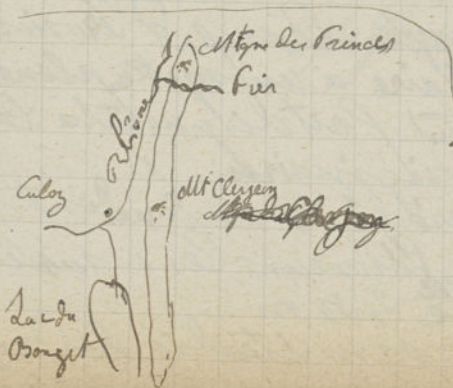 Mtgne des Princes
Fier
Rhône
Culoz
Mt Clergeon
Lac du
Bourget